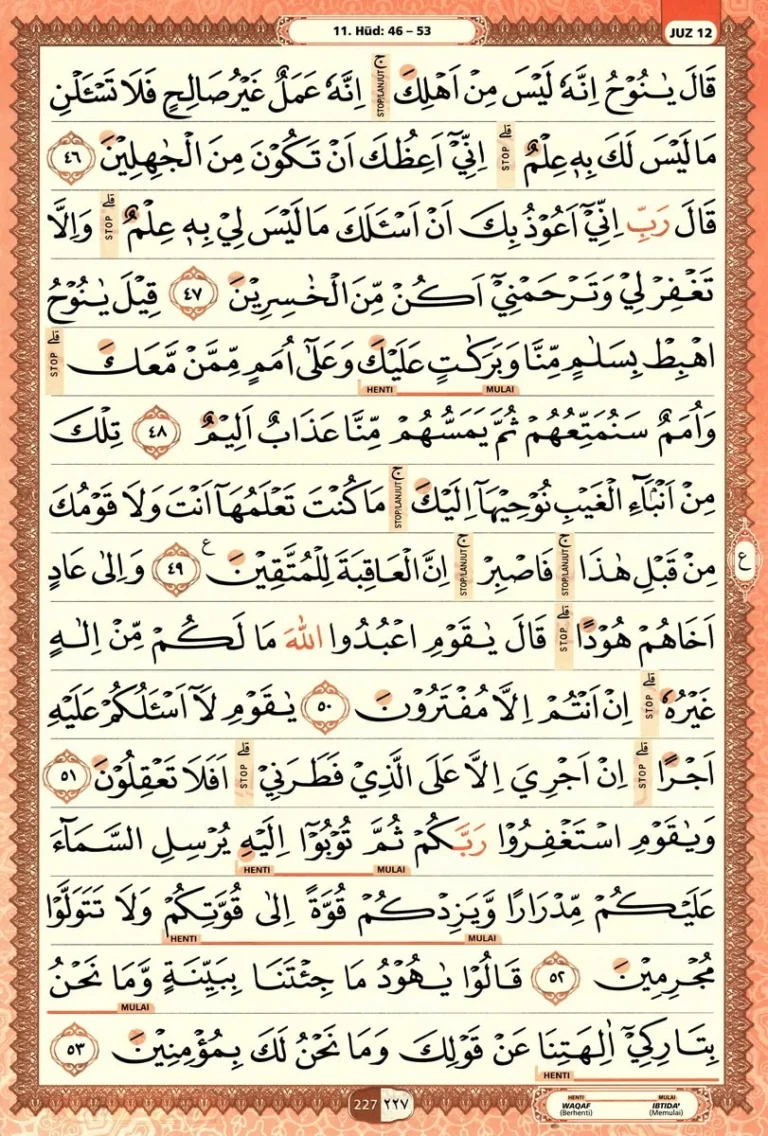 11. Hūd: 46 – 53
JUZ 12
قَالَ يٰنُوْحُ اِنَّهٗ لَيْسَ مِنْ اَهْلِكَ ۚ اِنَّهٗ عَمَلٌ غَيْرُ صَالِحٍ فَلَا تَسْـَٔلْنِ
STOP/LANJUT
مَا لَيْسَ لَكَ بِهٖ عِلْمٌ ۗ اِنِّيْٓ اَعِظُكَ اَنْ تَكُوْنَ مِنَ الْجٰهِلِيْنَ ٤٦
STOP
قَالَ رَبِّ اِنِّيْٓ اَعُوْذُ بِكَ اَنْ اَسْـَٔلَكَ مَا لَيْسَ لِيْ بِهٖ عِلْمٌ ۗ وَاِلَّا
STOP
تَغْفِرْ لِيْ وَتَرْحَمْنِيْٓ اَكُنْ مِّنَ الْخٰسِرِيْنَ ٤٧ قِيْلَ يٰنُوْحُ
اهْبِطْ بِسَلٰمٍ مِّنَّا وَبَرَكٰتٍ عَلَيْكَ وَعَلٰٓى اُمَمٍ مِّمَّنْ مَّعَكَ ۗ
STOP
HENTI MULAI
وَاُمَمٌ سَنُمَتِّعُهُمْ ثُمَّ يَمَسُّهُمْ مِّنَّا عَذَابٌ اَلِيْمٌ ٤٨ تِلْكَ
مِنْ اَنْۢبَاۤءِ الْغَيْبِ نُوْحِيْهَآ اِلَيْكَ ۚ مَا كُنْتَ تَعْلَمُهَآ اَنْتَ وَلَا قَوْمُكَ
STOP/LANJUT
مِنْ قَبْلِ هٰذَا ۚ فَاصْبِرْ ۚ اِنَّ الْعَاقِبَةَ لِلْمُتَّقِيْنَ ࣖ ٤٩ وَاِلٰى عَادٍ
STOP/LANJUT STOP/LANJUT
ع
اَخَاهُمْ هُوْدًا ۗ قَالَ يٰقَوْمِ اعْبُدُوا اللّٰهَ مَا لَكُمْ مِّنْ اِلٰهٍ
STOP
غَيْرُهٗ ۗ اِنْ اَنْتُمْ اِلَّا مُفْتَرُوْنَ ٥٠ يٰقَوْمِ لَآ اَسْـَٔلُكُمْ عَلَيْهِ
STOP
اَجْرًا ۗ اِنْ اَجْرِيَ اِلَّا عَلَى الَّذِيْ فَطَرَنِيْ ۗ اَفَلَا تَعْقِلُوْنَ ٥١
STOP STOP
وَيٰقَوْمِ اسْتَغْفِرُوْا رَبَّكُمْ ثُمَّ تُوْبُوْٓا اِلَيْهِ يُرْسِلِ السَّمَاۤءَ
HENTI MULAI
عَلَيْكُمْ مِّدْرَارًا وَّيَزِدْكُمْ قُوَّةً اِلٰى قُوَّتِكُمْ وَلَا تَتَوَلَّوْا
HENTI MULAI
مُجْرِمِيْنَ ٥٢ قَالُوْا يٰهُوْدُ مَا جِئْتَنَا بِبَيِّنَةٍ وَّمَا نَحْنُ
MULAI
بِتَارِكِيْٓ اٰلِهَتِنَا عَنْ قَوْلِكَ وَمَا نَحْنُ لَكَ بِمُؤْمِنِيْنَ ٥٣
HENTI
227 ٢٢٧
HENTI MULAI
WAQAF IBTIDA'
(Berhenti) (Memulai)